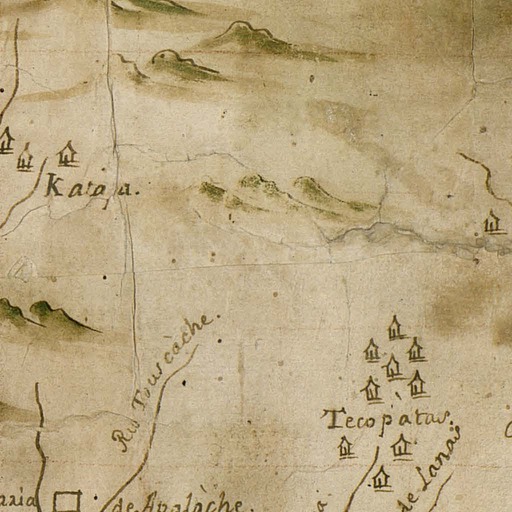 Katapa.
Rio Touscàche.
Tecopatas
de Lanaŭ
de Apalàche.